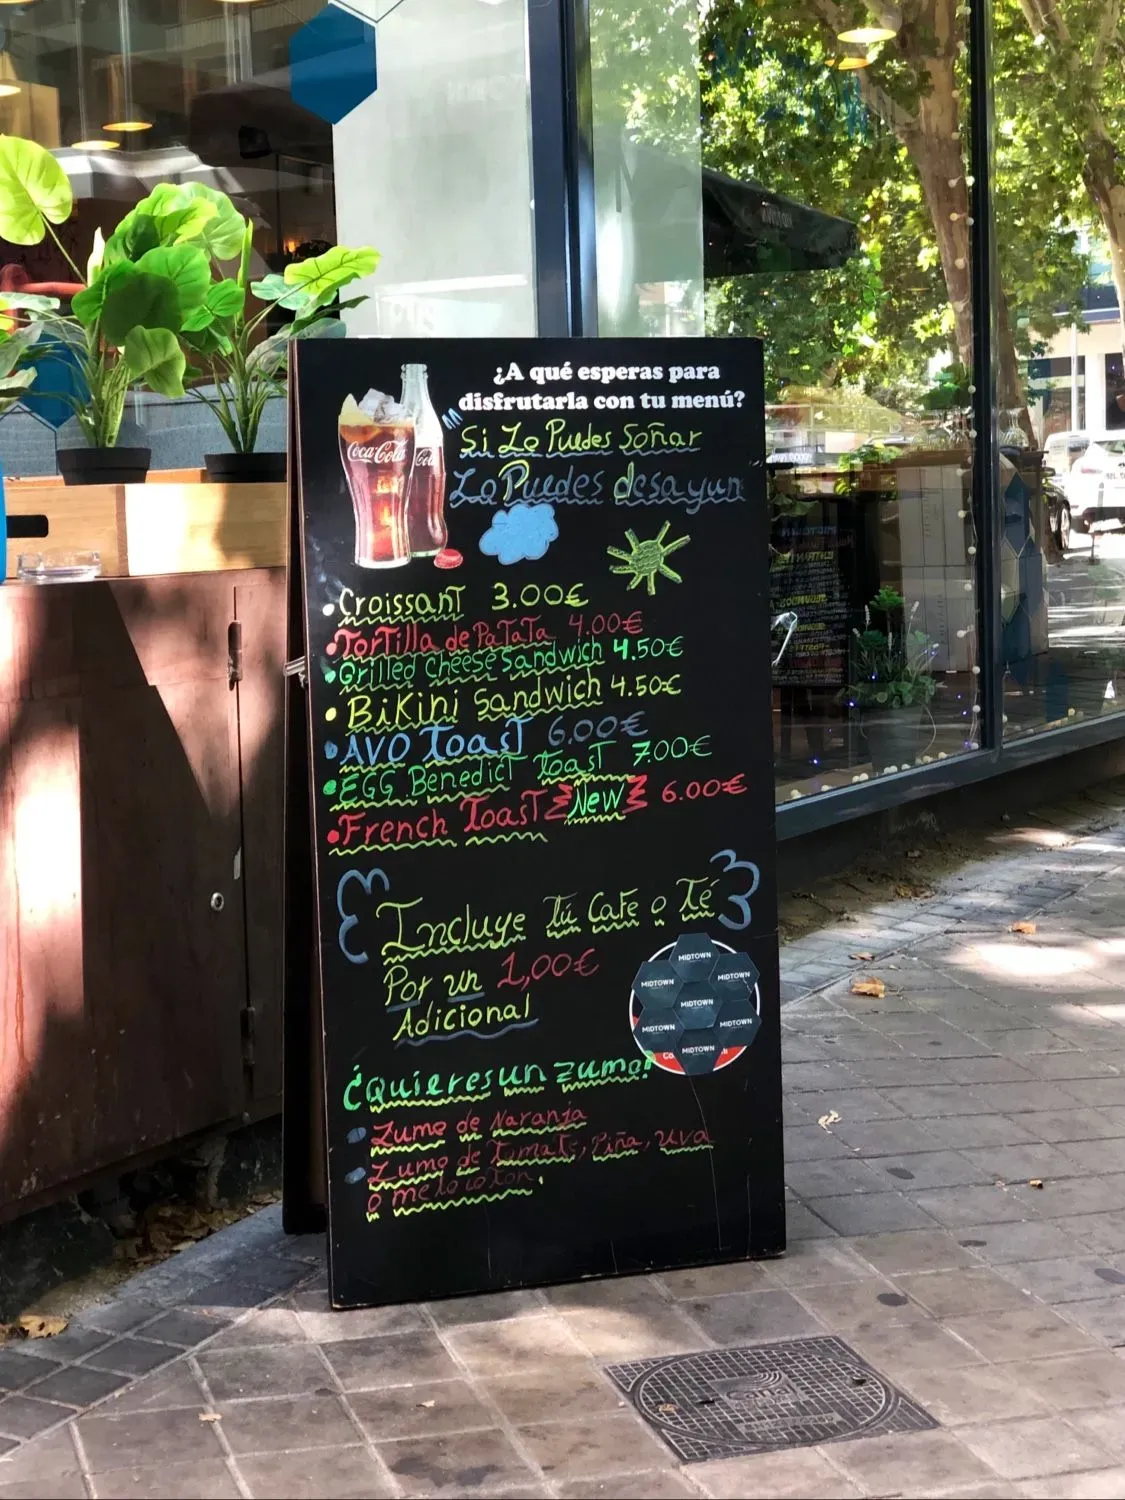 ¿A qué esperas para
disfrutarla con tu menú?
Coca-Cola
Si Lo Puedes Soñar
Lo Puedes desayun
Croissant 3.00€
Tortilla de Patata 4.00€
Grilled cheese Sandwich 4.50€
Bikini Sandwich 4.50€
AVO toast 6.00€
EGG Benedict toast 7.00€
French toast New 6.00€
Incluye tú Cafe o Té
Por un 1,00€
Adicional
MIDTOWN
MIDTOWN
MIDTOWN
MIDTOWN
MIDTOWN
MIDTOWN
MIDTOWN
¿Quieres un zumo?
Zumo de Naranja
Zumo de tomate, Piña, uva
o melocoton.
Canal